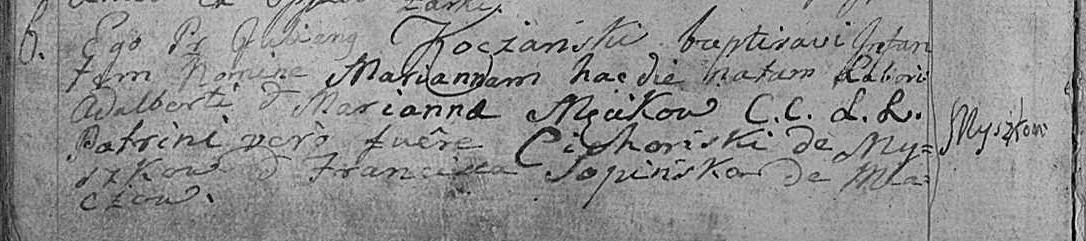 oppido Żarki.
6. Ego Pr Juliang Koczański baptisavi Infan
tem Nomine Mariannam hac die natam Labori:
Adalberti & Marianna C.C. L.L.
Patrini verò fuêre Cichoriski de My=
szkow & Francisca Sopińska de Ma=
czow.
Myszkow